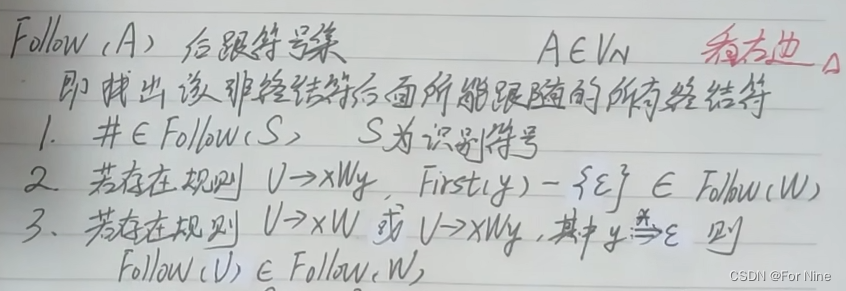 Follow(A) 后跟符号集 A∈VN 看右边△
即找出该非终结符后面所能跟随的所有终结符
1. #∈Follow(S) S为识别符号
2. 若存在规则 U→xWy, First(y)-{ε} ∈ Follow(W)
3. 若存在规则 U→xW 或 U→xWy,其中y*⇒ε 则
Follow(U) ∈ Follow(W)
CSDN @For Nine